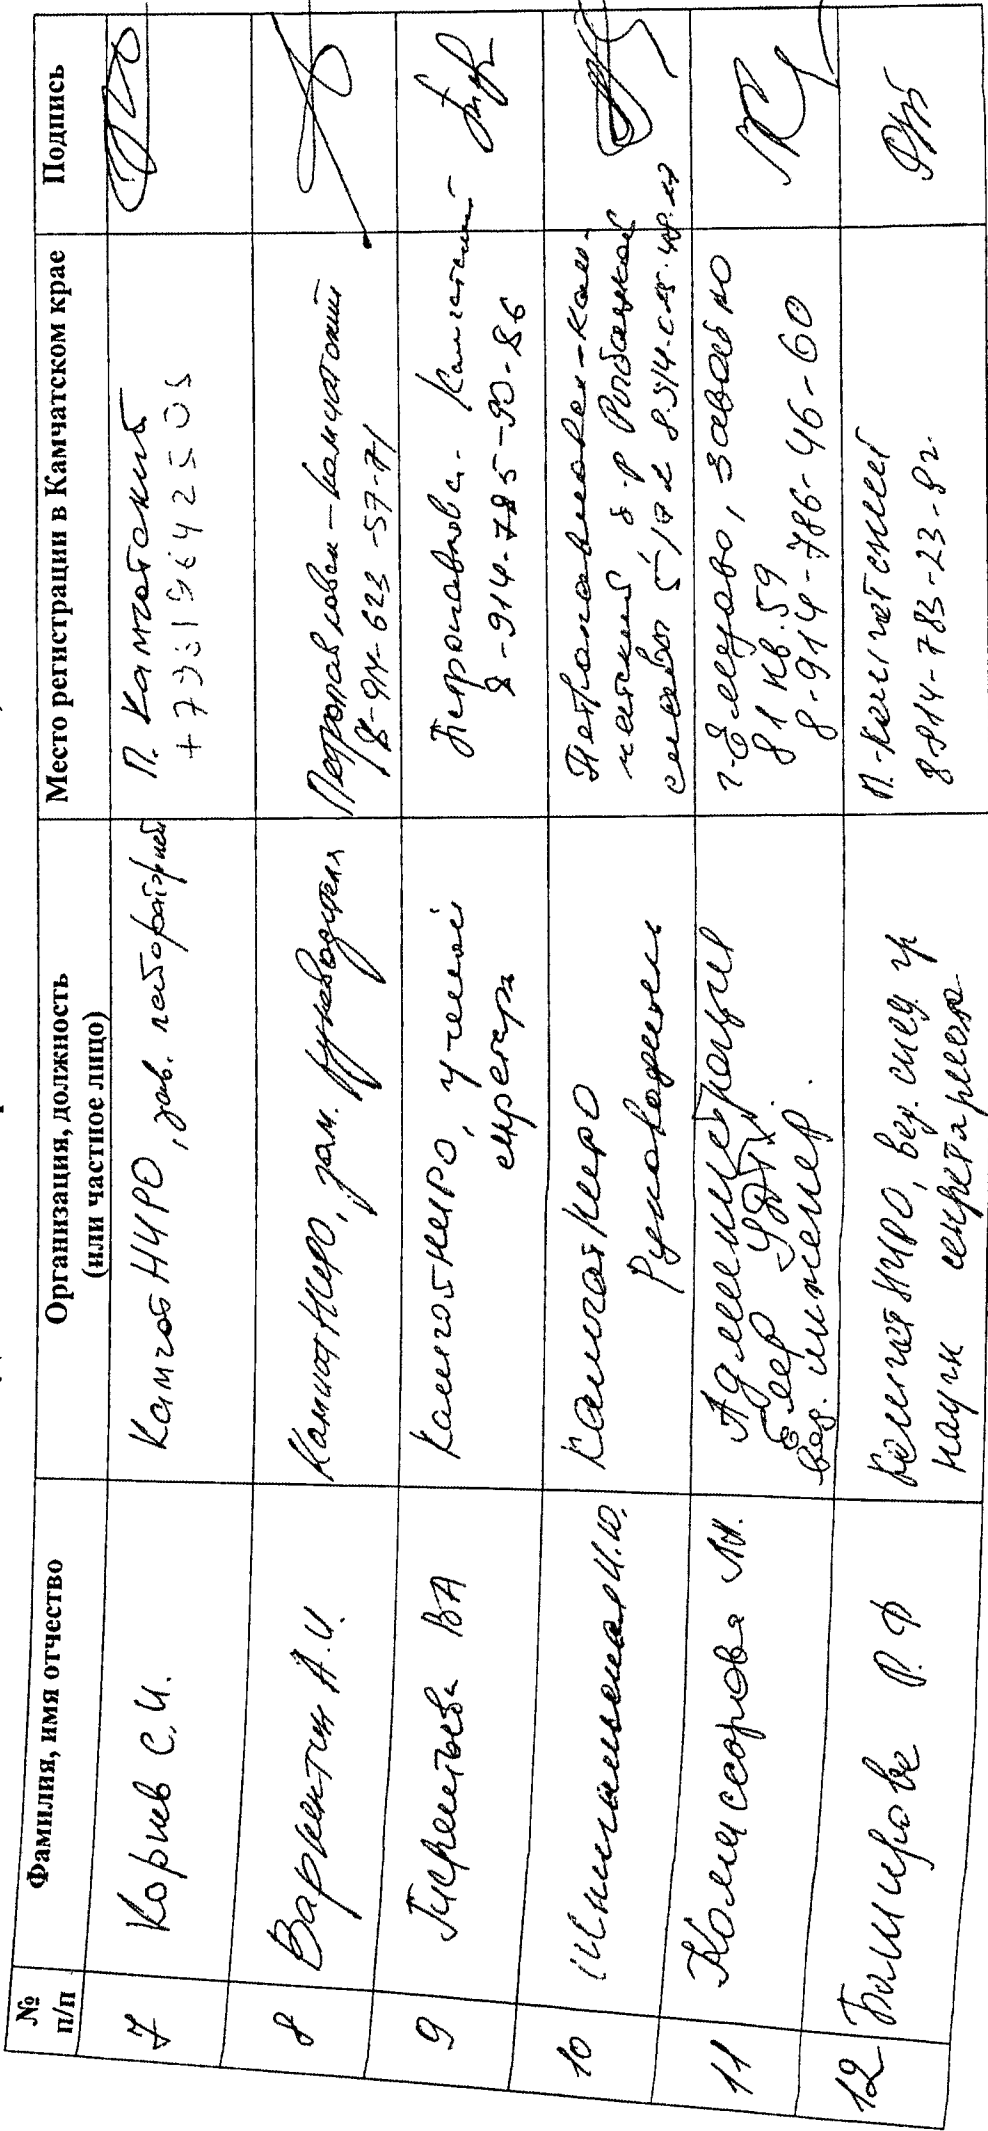 №
п/п
Фамилия, имя отчество
Организация, должность
(или частное лицо)
Место регистрации в Камчатском крае
Подпись
7
Корнев С.И.
КамчатНИРО, зав. лабораторией
П. Камчатский
8
Варкентин А.И.
КамчатНИРО, зам. руководителя
Петропавловск-Камчатский
8-914-623-57-71
9
ВА
КамчатНИРО, ученый
секретарь
Петропавловск-Камчатский
8-914-785-90-86
10
Н.Ю.
КамчатНИРО
Руководитель
Петропавловск-Кам-
чатский
11
Комиссарова
Администрация
вед. инженер.
г. Елизово,
81 кв. 59
8-914-786-46-60
12
Баширова Р.Ф
КамчатНИРО, вед. спец. гр
научн секретариата
П.-Камчатский
8914-783-23-82